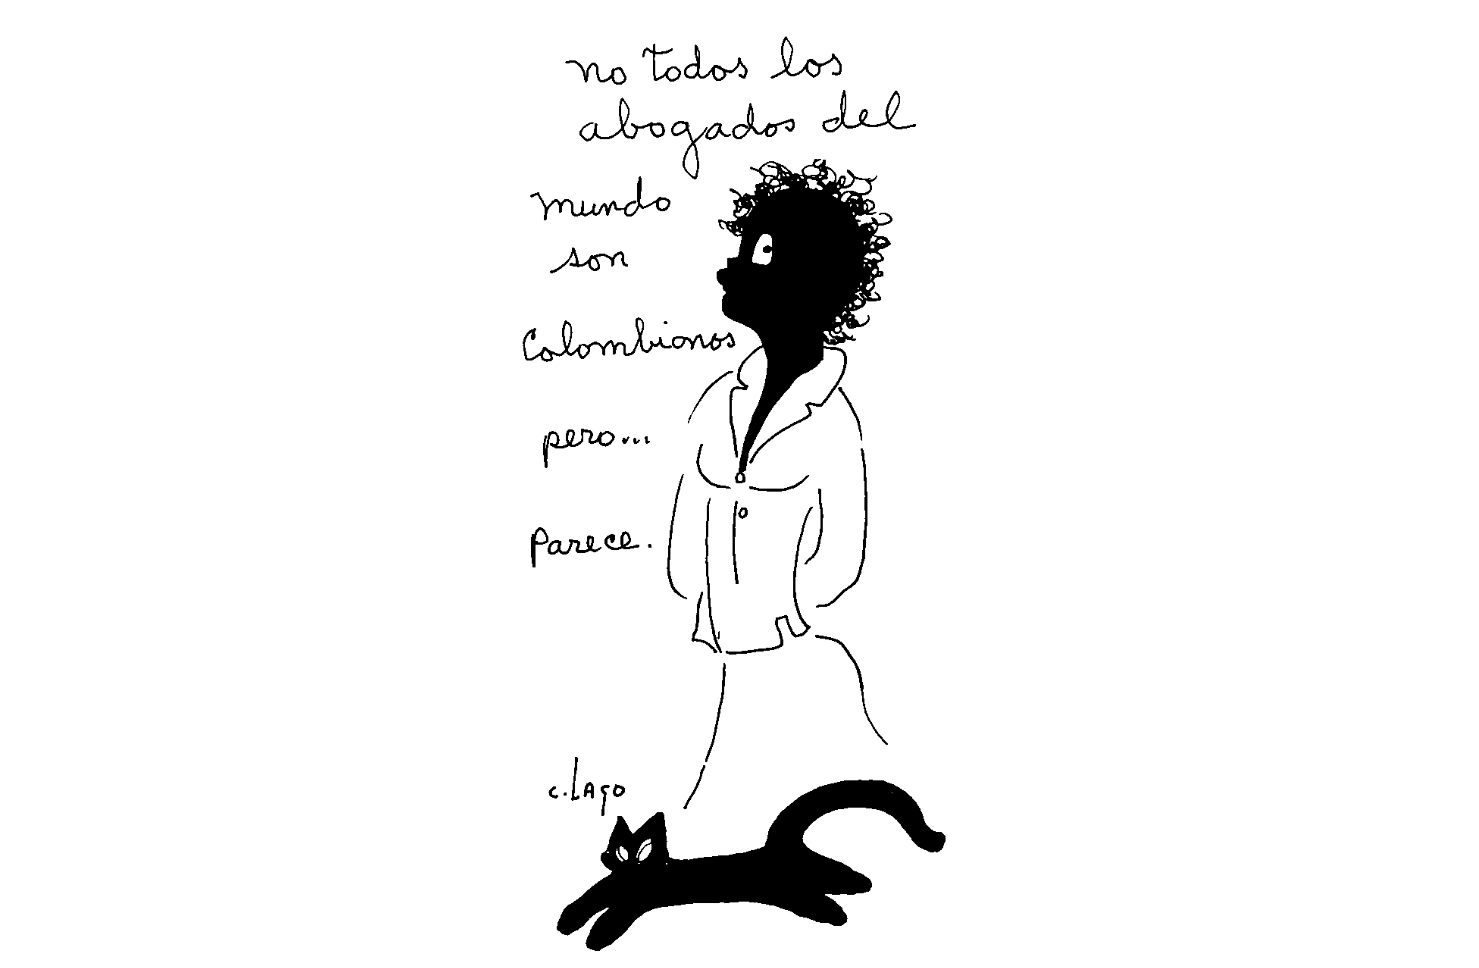 no todos los
abogados del
mundo
son
Colombianos
pero...
Parece.
c. Lago